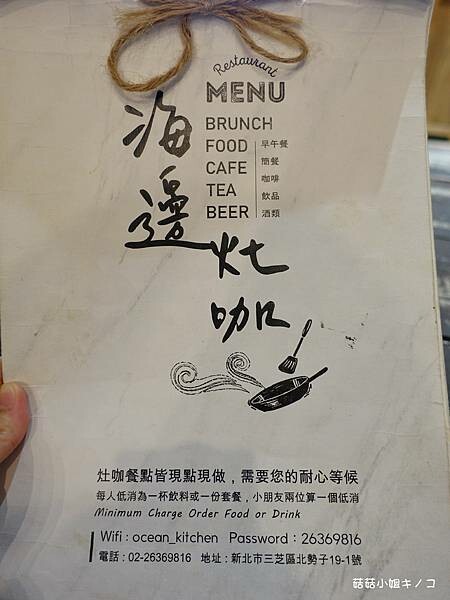 Restaurant
MENU
BRUNCH
FOOD
CAFE
TEA
BEER
早午餐
簡餐
咖啡
飲品
酒類
海邊
灶咖
灶咖餐點皆現點現做，需要您的耐心等候
每人低消為一杯飲料或一份套餐，小朋友兩位算一個低消
Minimum Charge Order Food or Drink
Wifi : ocean_kitchen Password : 26369816
電話 : 02-26369816 地址 : 新北市三芝區北勢子19-1號
菇菇小姐キノコ